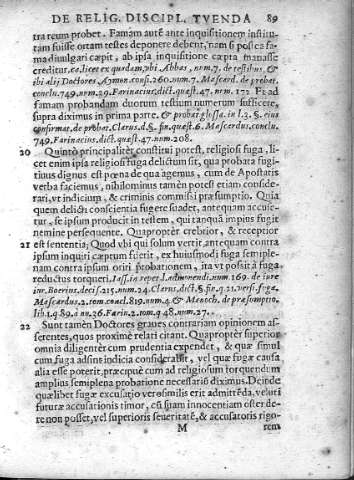 DE RELIG. DISCIPL. TVENDA 89
tra reum probet. Famam autē ante inquisitionem institu-
tam fuisse ortam testes deponere debent, nam si postea fa-
ma diuulgari capit, ab ipsa inquisitione cæpta manasse
creditur. ca. licet ex quadam, vbi Abbas, num. 7. de testibus, &
ibi alij Doctores, Aymon cons. 260. num. 7. Mascard. de probat.
conclu. 749. num. 29. Farinacius, dict. quæst. 47. nrm. 172 Et ad
famam probandam duorum testium numerum sufficere,
supra diximus in prima parte, & probat glossa in l. 3. §. eius
confirmat. de probat. Clarus. d. §. fin. quæst. 6. Mascardus. conclu.
749. Farinacius, dict. quæst. 47. num. 208.
20 Quintò principalitèr constitui potest, religiosi fuga, li-
cet enim ipsa religiosi fuga delictum sit, qua probata fugi-
tiuus dignus est pœna de qua agemus, cum de Apostatis
verba faciemus, nihilominus tamèn potest etiam conside-
rari, vt indicium, & criminis commissi præsumptio. Quia
quem delicti conscientia fugere suadet, antequam accuse-
tur, se ipsum producit in testem, qui tanquā impius fugit
nemine persequente. Quaproptèr crebrior, & receptior
21 est sententia; Quod vbi qui solum vertit antequam contra
ipsum inquiri cæptum fuerit, ex huiusmodi fuga semiple-
nam contra ipsum oriri probationem, ita vt possit à fuga
reductus torqueri. Iass. in repet. l. admonendi. num. 169. de iure
iur. Boerius, decis. 215. num. 24. Clarus, dict. §. fin. q. 21. versi. fuga.
Mascardus. 2. tom. concl. 819. num. 4. & Menoch. de præsomptio.
lib. 1. q. 89. à nu. 36. Farin. 2. tom. q. 48. num. 27.
22 Sunt tamèn Doctores graues contrariam opinionem as-
serentes, quos proximè relati citant. Quaproptèr superior
omnia diligenter cum prudentia expendet, & quæ simul
cum fuga adsint indicia considerabit, vel quæ fugæ causa
alia esse poterit, præcipuè cum ad religiosum torquendum
amplius semiplena probatione necessariō diximus. Deinde
quælibet fugæ excusatio verosimilis erit admittēda, veluti
futuræ accusationis timor, cū suam innocentiam osten de-
re non posset, vel superioris seueritatē, & accusatoris rigo-
M rem